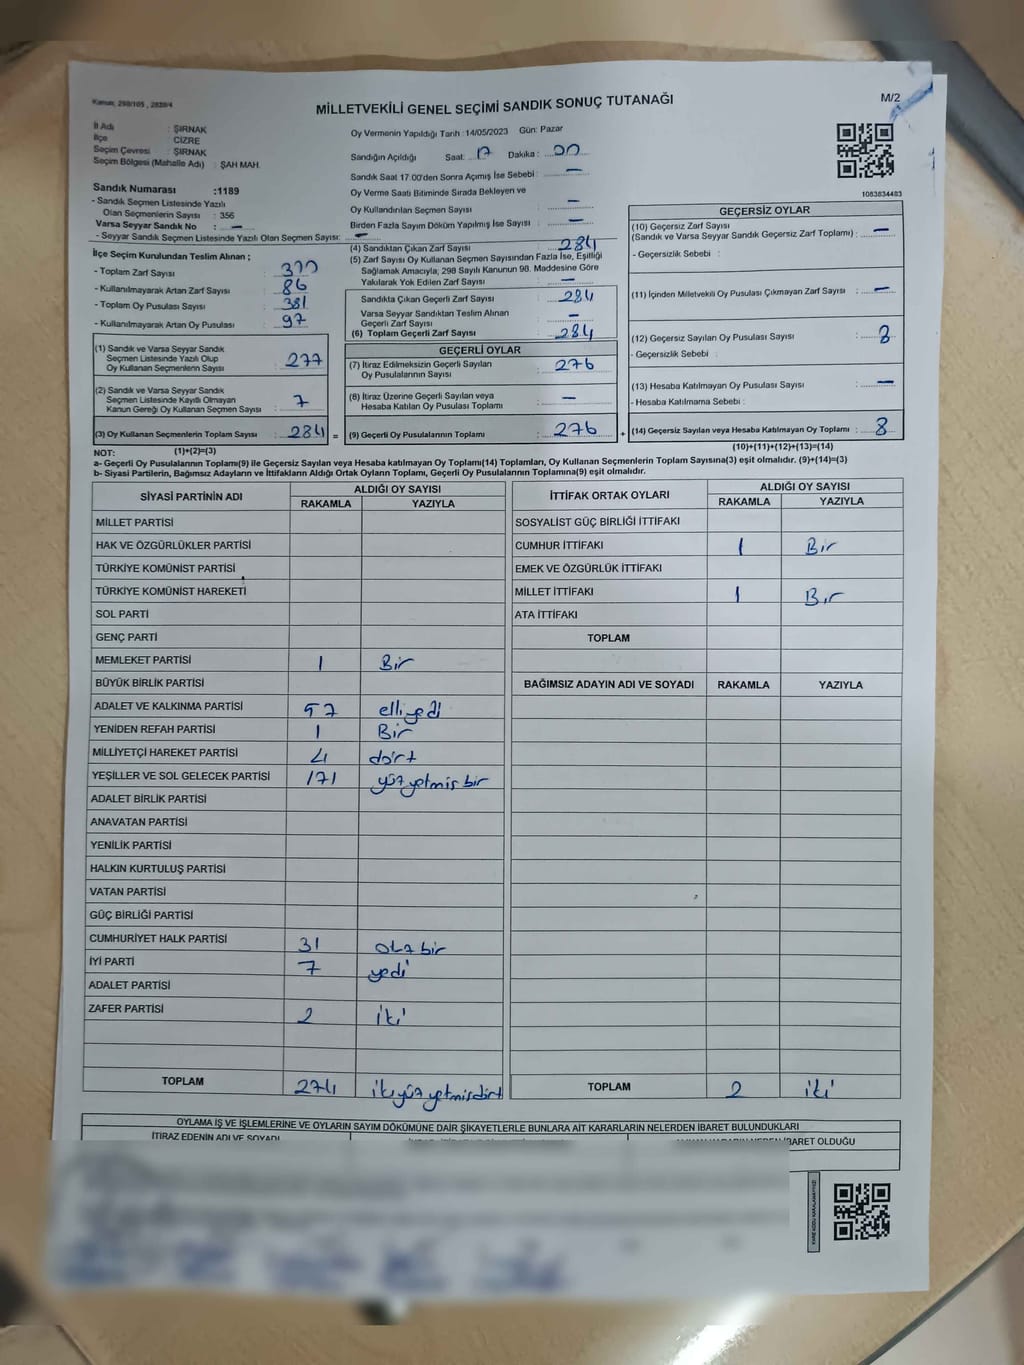 Kanun: 298/105, 2839/4
MİLLETVEKİLİ GENEL SEÇİMİ SANDIK SONUÇ TUTANAĞI
M/2
İl Adı : ŞIRNAK
İlçe : CİZRE
Seçim Çevresi : ŞIRNAK
Seçim Bölgesi (Mahalle Adı) : ŞAH MAH.
Oy Vermenin Yapıldığı Tarih :14/05/2023 Gün: Pazar
Sandığın Açıldığı Saat: 17 Dakika: 00
Sandık Saat 17.00'den Sonra Açımış İse Sebebi : —
Oy Verme Saati Bitiminde Sırada Bekleyen ve
Oy Kullandırılan Seçmen Sayısı —
Birden Fazla Sayım Döküm Yapılmış İse Sayısı : —
1083834483
Sandık Numarası :1189
- Sandık Seçmen Listesinde Yazılı
Olan Seçmenlerin Sayısı : 356
Varsa Seyyar Sandık No : —
- Seyyar Sandık Seçmen Listesinde Yazılı Olan Seçmen Sayısı: —
İlçe Seçim Kurulundan Teslim Alınan ;
- Toplam Zarf Sayısı : 370
- Kullanılmayarak Artan Zarf Sayısı : 86
- Toplam Oy Pusulası Sayısı : 381
- Kullanılmayarak Artan Oy Pusulası : 97
(1) Sandık ve Varsa Seyyar Sandık
Seçmen Listesinde Yazılı Olup
Oy Kullanan Seçmenlerin Sayısı : 277
(2) Sandık ve Varsa Seyyar Sandık
Seçmen Listesinde Kayıtlı Olmayan
Kanun Gereği Oy Kullanan Seçmen Sayısı : 7
(3) Oy Kullanan Seçmenlerin Toplam Sayısı : 284 =
(4) Sandıktan Çıkan Zarf Sayısı : 284
(5) Zarf Sayısı Oy Kullanan Seçmen Sayısından Fazla İse, Eşitliği
Sağlamak Amacıyla, 298 Sayılı Kanunun 98. Maddesine Göre
Yakılarak Yok Edilen Zarf Sayısı : —
Sandıkta Çıkan Geçerli Zarf Sayısı : 284
Varsa Seyyar Sandıktan Teslim Alınan
Geçerli Zarf Sayısı : —
(6) Toplam Geçerli Zarf Sayısı : 284
GEÇERLİ OYLAR
(7) İtiraz Edilmeksizin Geçerli Sayılan
Oy Pusulalarının Sayısı : 276
(8) İtiraz Üzerine Geçerli Sayılan veya
Hesaba Katılan Oy Pusulası Toplamı : —
(9) Geçerli Oy Pusulalarının Toplamı : 276 +
GEÇERSİZ OYLAR
(10) Geçersiz Zarf Sayısı
(Sandık ve Varsa Seyyar Sandık Geçersiz Zarf Toplamı) : —
- Geçersizlik Sebebi :
(11) İçinden Milletvekili Oy Pusulası Çıkmayan Zarf Sayısı : —
(12) Geçersiz Sayılan Oy Pusulası Sayısı : 8
- Geçersizlik Sebebi :
(13) Hesaba Katılmayan Oy Pusulası Sayısı : —
- Hesaba Katılmama Sebebi :
(14) Geçersiz Sayılan veya Hesaba Katılmayan Oy Toplamı : 8
NOT: (1)+(2)=(3) (10)+(11)+(12)+(13)=(14)
a- Geçerli Oy Pusulalarının Toplamı(9) ile Geçersiz Sayılan veya Hesaba katılmayan Oy Toplamı(14) Toplamları, Oy Kullanan Seçmenlerin Toplam Sayısına(3) eşit olmalıdır. (9)+(14)=(3)
b- Siyasi Partilerin, Bağımsız Adayların ve İttifakların Aldığı Ortak Oyların Toplamı, Geçerli Oy Pusulalarının Toplamına(9) eşit olmalıdır.
SİYASİ PARTİNİN ADI ALDIĞI OY SAYISI
RAKAMLA YAZIYLA
MİLLET PARTİSİ
HAK VE ÖZGÜRLÜKLER PARTİSİ
TÜRKİYE KOMÜNİST PARTİSİ
TÜRKİYE KOMÜNİST HAREKETİ
SOL PARTİ
GENÇ PARTİ
MEMLEKET PARTİSİ 1 Bir
BÜYÜK BİRLİK PARTİSİ
ADALET VE KALKINMA PARTİSİ 57 elliyedi
YENİDEN REFAH PARTİSİ 1 Bir
MİLLİYETÇİ HAREKET PARTİSİ 4 dört
YEŞİLLER VE SOL GELECEK PARTİSİ 171 yüz yetmiş bir
ADALET BİRLİK PARTİSİ
ANAVATAN PARTİSİ
YENİLİK PARTİSİ
HALKIN KURTULUŞ PARTİSİ
VATAN PARTİSİ
GÜÇ BİRLİĞİ PARTİSİ
CUMHURİYET HALK PARTİSİ 31 otuz bir
İYİ PARTİ 7 yedi
ADALET PARTİSİ
ZAFER PARTİSİ 2 iki
TOPLAM 274 ikiyüz yetmişdört
İTTİFAK ORTAK OYLARI ALDIĞI OY SAYISI
RAKAMLA YAZIYLA
SOSYALİST GÜÇ BİRLİĞİ İTTİFAKI
CUMHUR İTTİFAKI 1 Bir
EMEK VE ÖZGÜRLÜK İTTİFAKI
MİLLET İTTİFAKI 1 Bir
ATA İTTİFAKI
TOPLAM
BAĞIMSIZ ADAYIN ADI VE SOYADI RAKAMLA YAZIYLA
TOPLAM 2 iki
OYLAMA İŞ VE İŞLEMLERİNE VE OYLARIN SAYIM DÖKÜMÜNE DAİR ŞİKAYETLERLE BUNLARA AİT KARARLARIN NELERDEN İBARET BULUNDUKLARI
İTİRAZ EDENİN ADI VE SOYADI
İBARET OLDUĞU